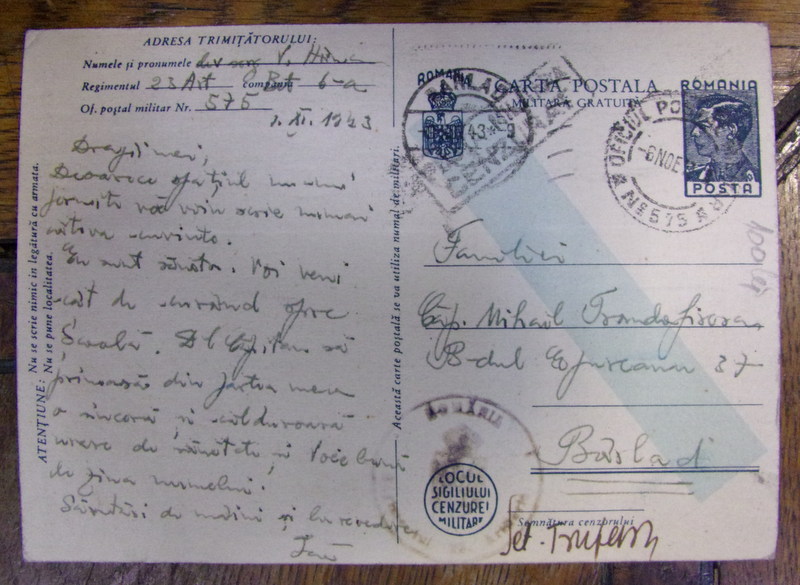 ADRESA TRIMIȚĂTORULUI:
Numele și pronumele
Regimentul 23 Art compania 6-a
Of. poștal militar Nr. 575
XI. 1943
Dragii mei,
Deoarece spațiul nu-mi
vă voiu scrie numai
câteva cuvinte.
Eu sunt sănătos. Voi veni
cât de curând spre
Școală. Dl Căpitan să
primească din partea mea
o sinceră și călduroasă
urare de sănătate și voie bună
de ziua numelui.
Sărutări de mâini și la revedere
ATENȚIUNE: Nu se scrie nimic în legătură cu armata.
Nu se pune localitatea.
Această carte poștală se va utiliza numai de militari.
ROMÂNIA
CARTA POȘTALĂ
MILITARĂ GRATUITĂ
BARLAD
CENZURAT
OFICIUL PO
-6 NOE
Nº 575
ROMANIA
POSTA
100 lei
Familiei
Cap. Mihail
B-dul 37
Bârlad
ROMÂNIA
LOCUL
SIGILIULUI
CENZUREI
MILITARE
Semnătura cenzorului